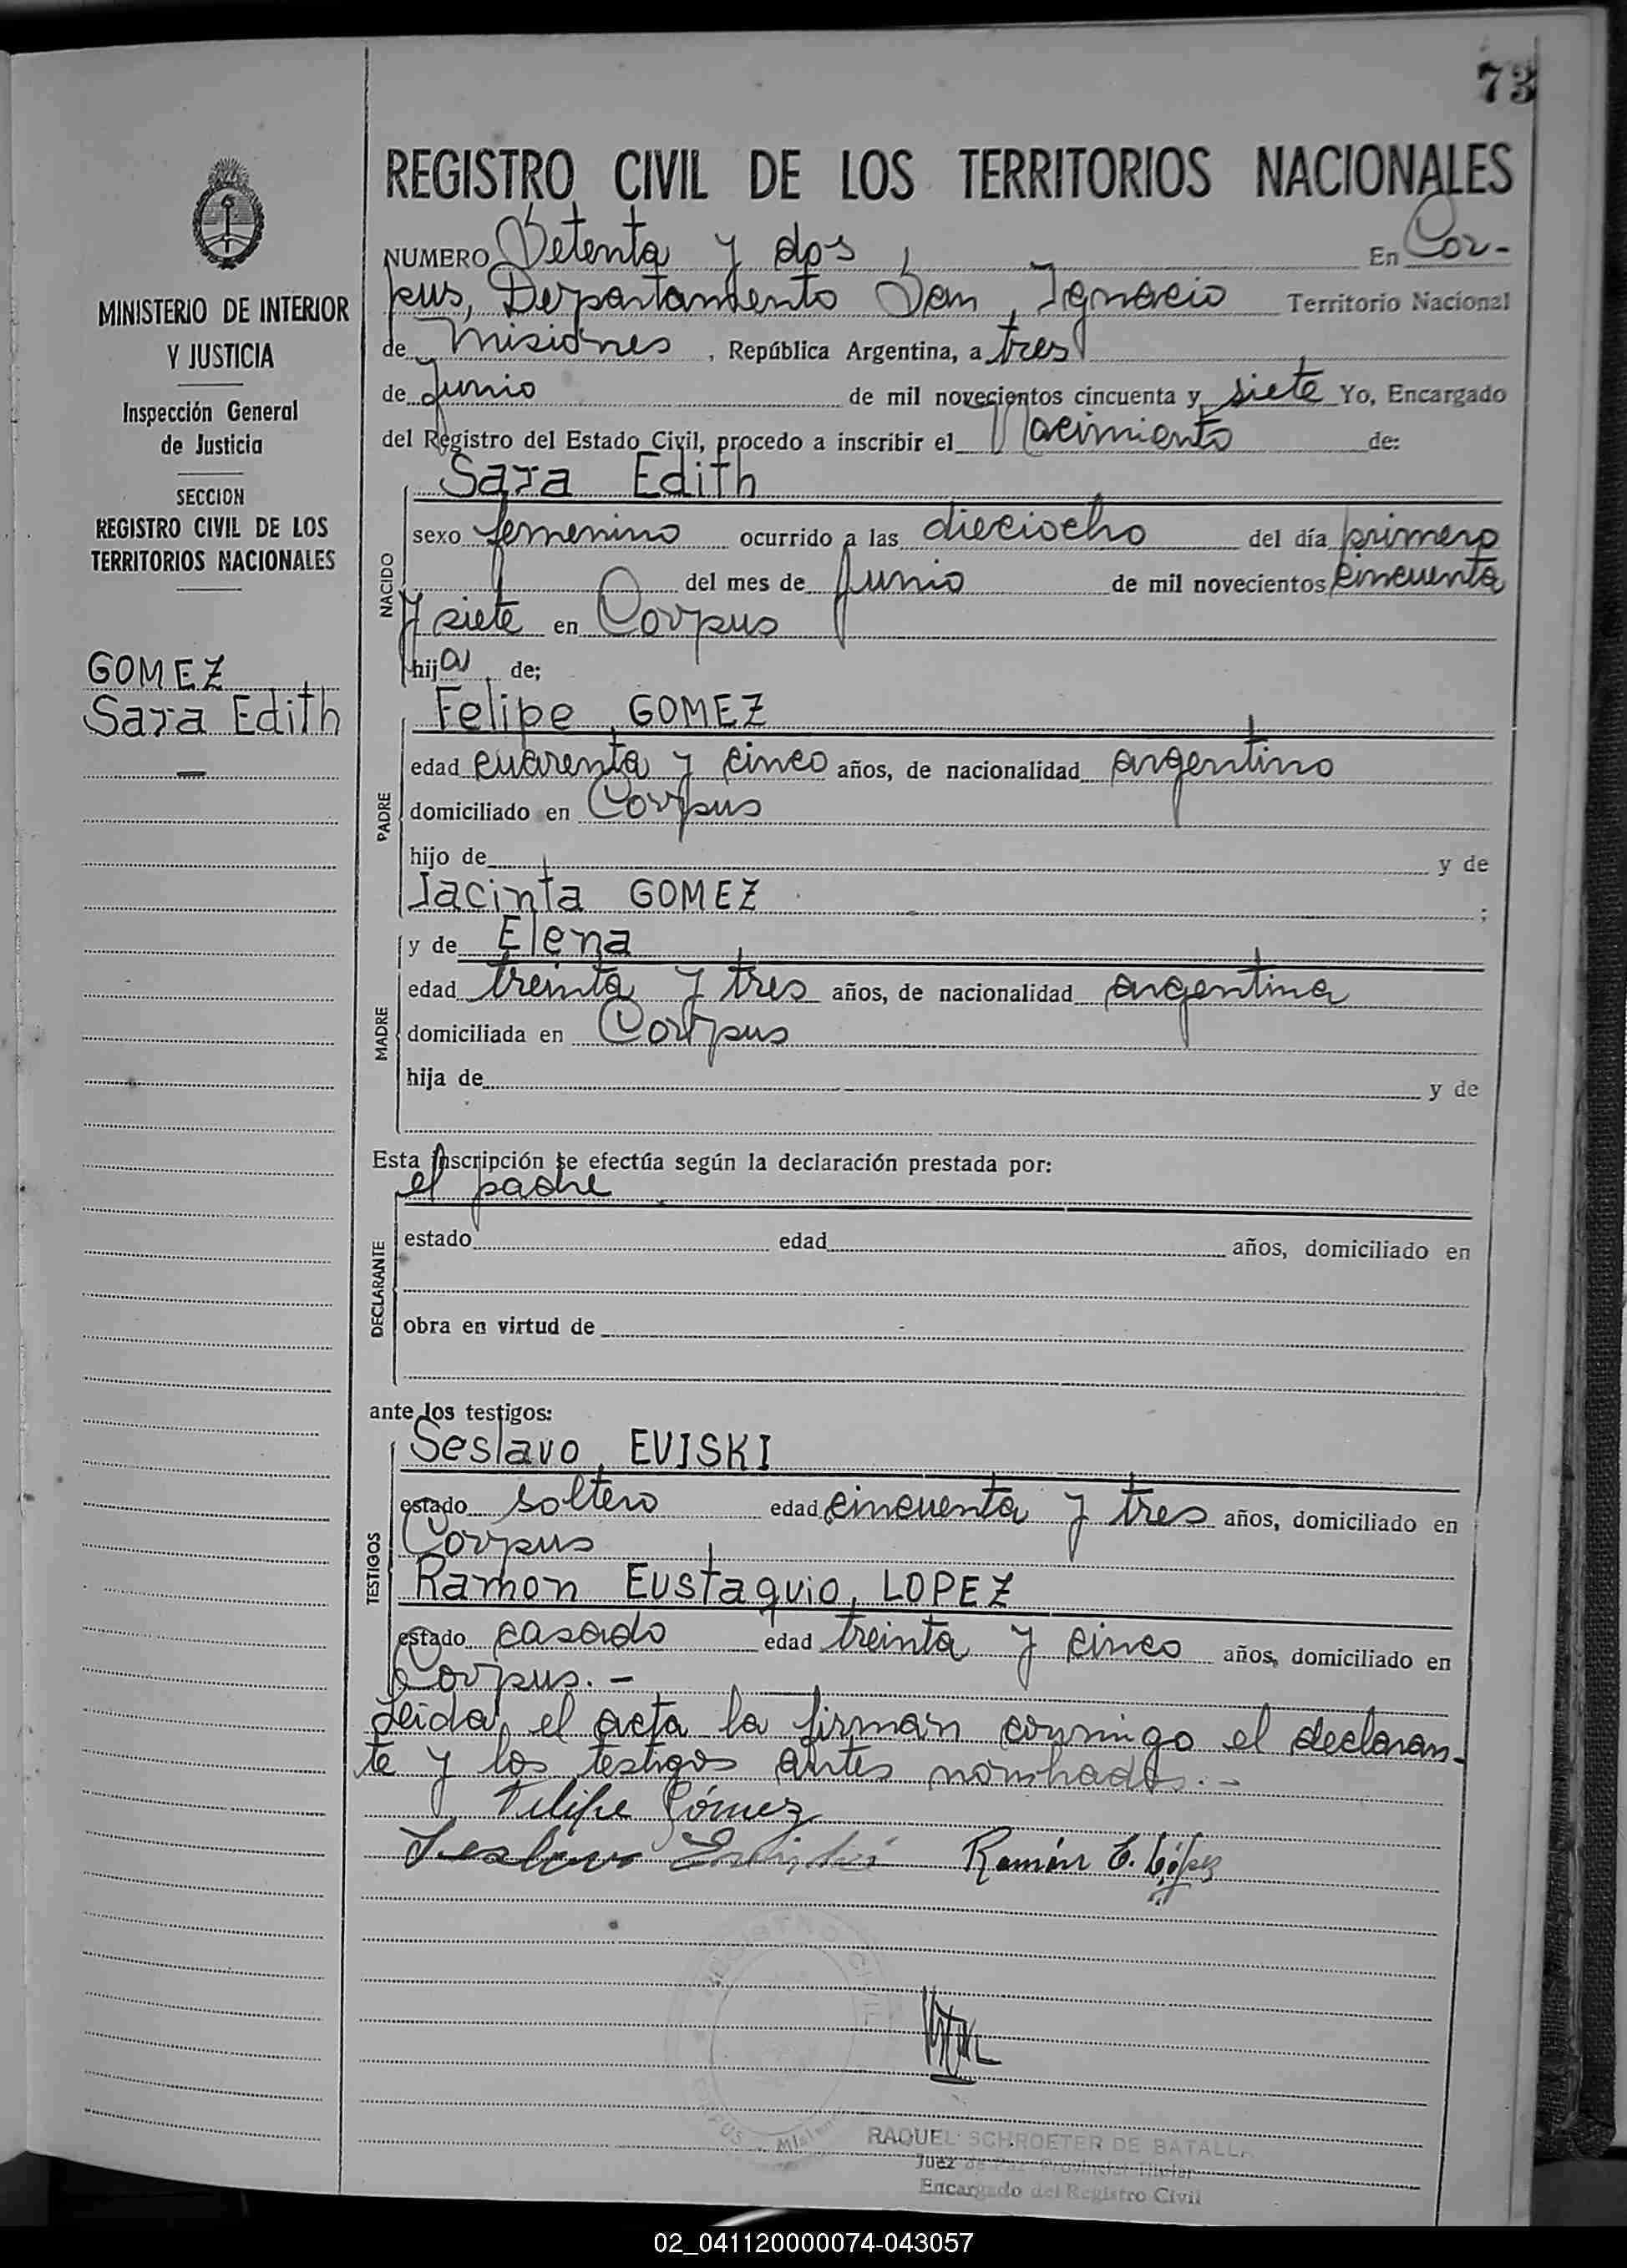 73
REGISTRO CIVIL DE LOS TERRITORIOS NACIONALES
NUMERO Setenta y dos, En Cor-
pus, Departamento San Ignacio Territorio Nacional
de Misiones, República Argentina, a tres
de Junio de mil novecientos cincuenta y siete Yo, Encargado
del Registro del Estado Civil, procedo a inscribir el Nacimiento de:
Sara Edith
NACIDO
sexo femenino ocurrido a las dieciocho del día primero
del mes de Junio de mil novecientos cincuenta
y siete en Corpus
hija de;
MINISTERIO DE INTERIOR
Y JUSTICIA
Inspección General
de Justicia
SECCION
REGISTRO CIVIL DE LOS
TERRITORIOS NACIONALES
GOMEZ
Sara Edith
—
Felipe GOMEZ
PADRE
edad cuarenta y cinco años, de nacionalidad argentino
domiciliado en Corpus
hijo de y de
Jacinta GOMEZ ;
y de Elena
MADRE
edad treinta y tres años, de nacionalidad argentina
domiciliada en Corpus
hija de y de
Esta inscripción se efectúa según la declaración prestada por:
el padre
DECLARANTE
estado edad años, domiciliado en
obra en virtud de
ante los testigos:
Seslavo EVISKI
TESTIGOS
estado soltero edad cincuenta y tres años, domiciliado en
Corpus
Ramon Eustaquio LOPEZ
estado casado edad treinta y cinco años, domiciliado en
Corpus.-
Leida el acta la firman conmigo el declaran-
te y los testigos antes nombrados.-
Felipe Gómez
Seslavo Ramón E. López
REGISTRO CIVIL
CORPUS Misiones
RAQUEL SCHROETER DE BATALLA
Juez de Paz Provincial Titular
Encargado del Registro Civil
02_041120000074-043057